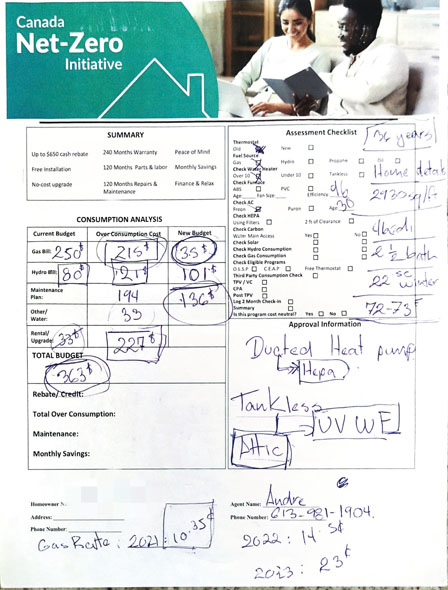 Canada
Net-Zero
Initiative
SUMMARY
Up to $650 cash rebate 240 Months Warranty Peace of Mind
Free Installation 120 Months Parts & labor Monthly Savings
No-cost upgrade 120 Months Repairs & Maintenance Finance & Relax
CONSUMPTION ANALYSIS
Current Budget Over Consumption Cost New Budget
Gas Bill: 250$ 215$ 35$
Hydro Bill: 80$ 21$ 101$
Maintenance Plan: 194 136$
Other/Water: 33
Rental/Upgrade: 33$ 227$
TOTAL BUDGET
363$
Rebate/Credit:
Total Over Consumption:
Maintenance:
Monthly Savings:
Assessment Checklist
Thermostat
Old New
Fuel Source
Gas Hydro Propane Oil
Check Water Heater
Over 10 Under 10 Tankless
Check Furnace
ABS PVC Efficiency 96
Age Fan Size
Check AC
Freon Puron Age 30
Check HEPA
Using Filters 2 ft of Clearance
Check Carbon
Water Main Access Yes No
Check Solar
Check Hydro Consumption
Check Gas Consumption
Check Eligible Programs
O.E.S.P C.E.A.P Free Thermostat
Third Party Consumption Check
TPV / VC
CPA
Post TPV
Log 2 Month Check-in
Summary
Is this program cost neutral? Yes No
36 years
Home detach
2930 sq/ft
4 bedi
2 1/2 bath
22 sc
winter
72-73°
Approval Information
Ducted Heat pump
Hepa
Tankless
UV WE
Attic
Homeowner
Address:
Phone Number:
Gas Rate: 2021: 10.35¢
Agent Name: Andre
Phone Number: 613-981-1904
2022: 14.5¢
2023: 23¢